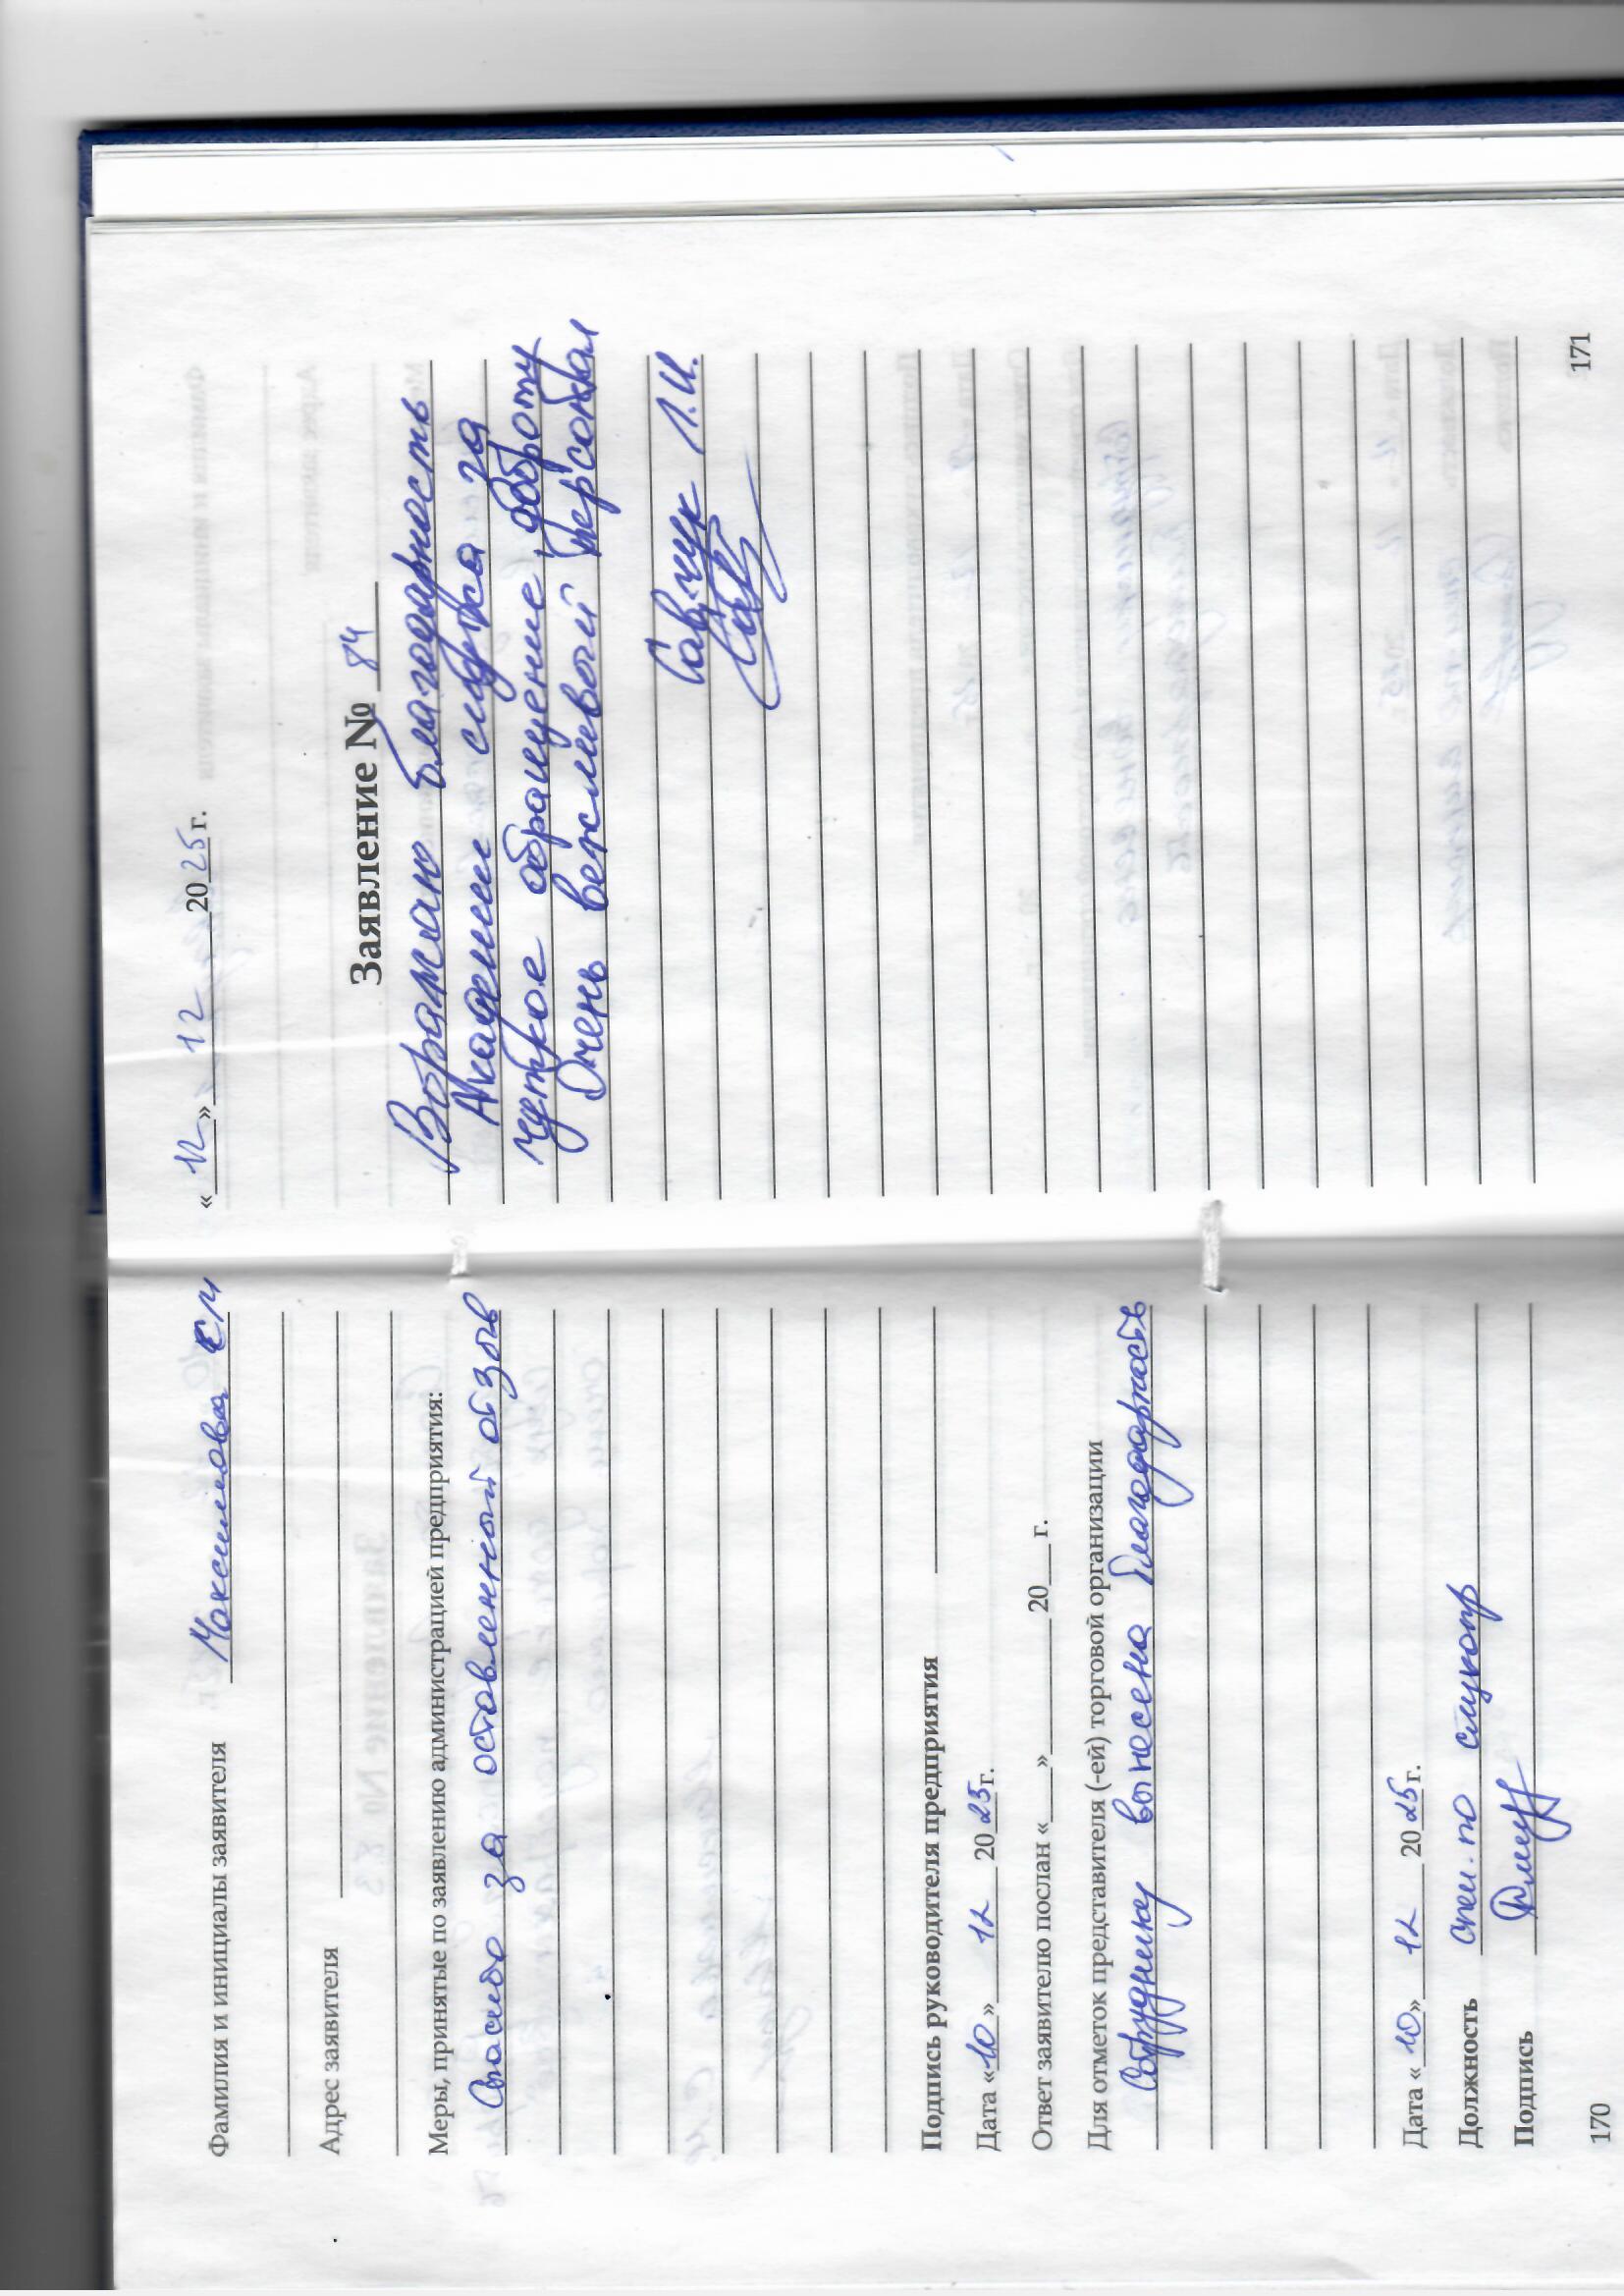 Фамилия и инициалы заявителя Максимова Е М
Адрес заявителя
Меры, принятые по заявлению администрацией предприятия:
Спасибо за оставленный отзыв
Подпись руководителя предприятия
Дата «10» 12 2025г.
Ответ заявителю послан «___»__________20___г.
Для отметок представителя (-ей) торговой организации
Сотруднику вынесена благодарность
Дата «10» 12 2025г.
Должность спец. по слухопр
Подпись
170
«12» 12 2025г.
Заявление № 84
Воражаю благодарность
Академии слуха за
чуткое обращение, доброту
Очень вежливый персонал
Савчук Л.И.
171